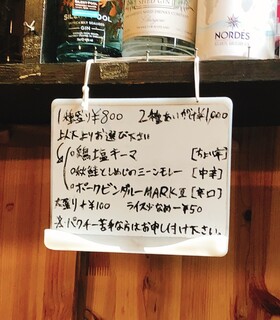 GIN
NORDÉS
1種盛り¥800 2種あいがけ¥1,000
以下よりお選び下さい
○鶏塩キーマ [ちょい辛]
○秋鮭としめじのミーンモレー [中辛]
○ポークビンダルーMARKⅡ [辛口]
大盛り+¥100 ライス少なめ-¥50
※パクチー苦手な方はお申し付け下さい。